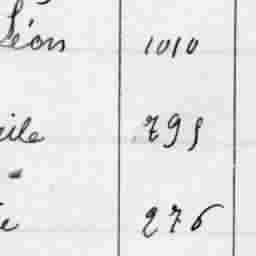 Léon 1010
ile 795
e 276